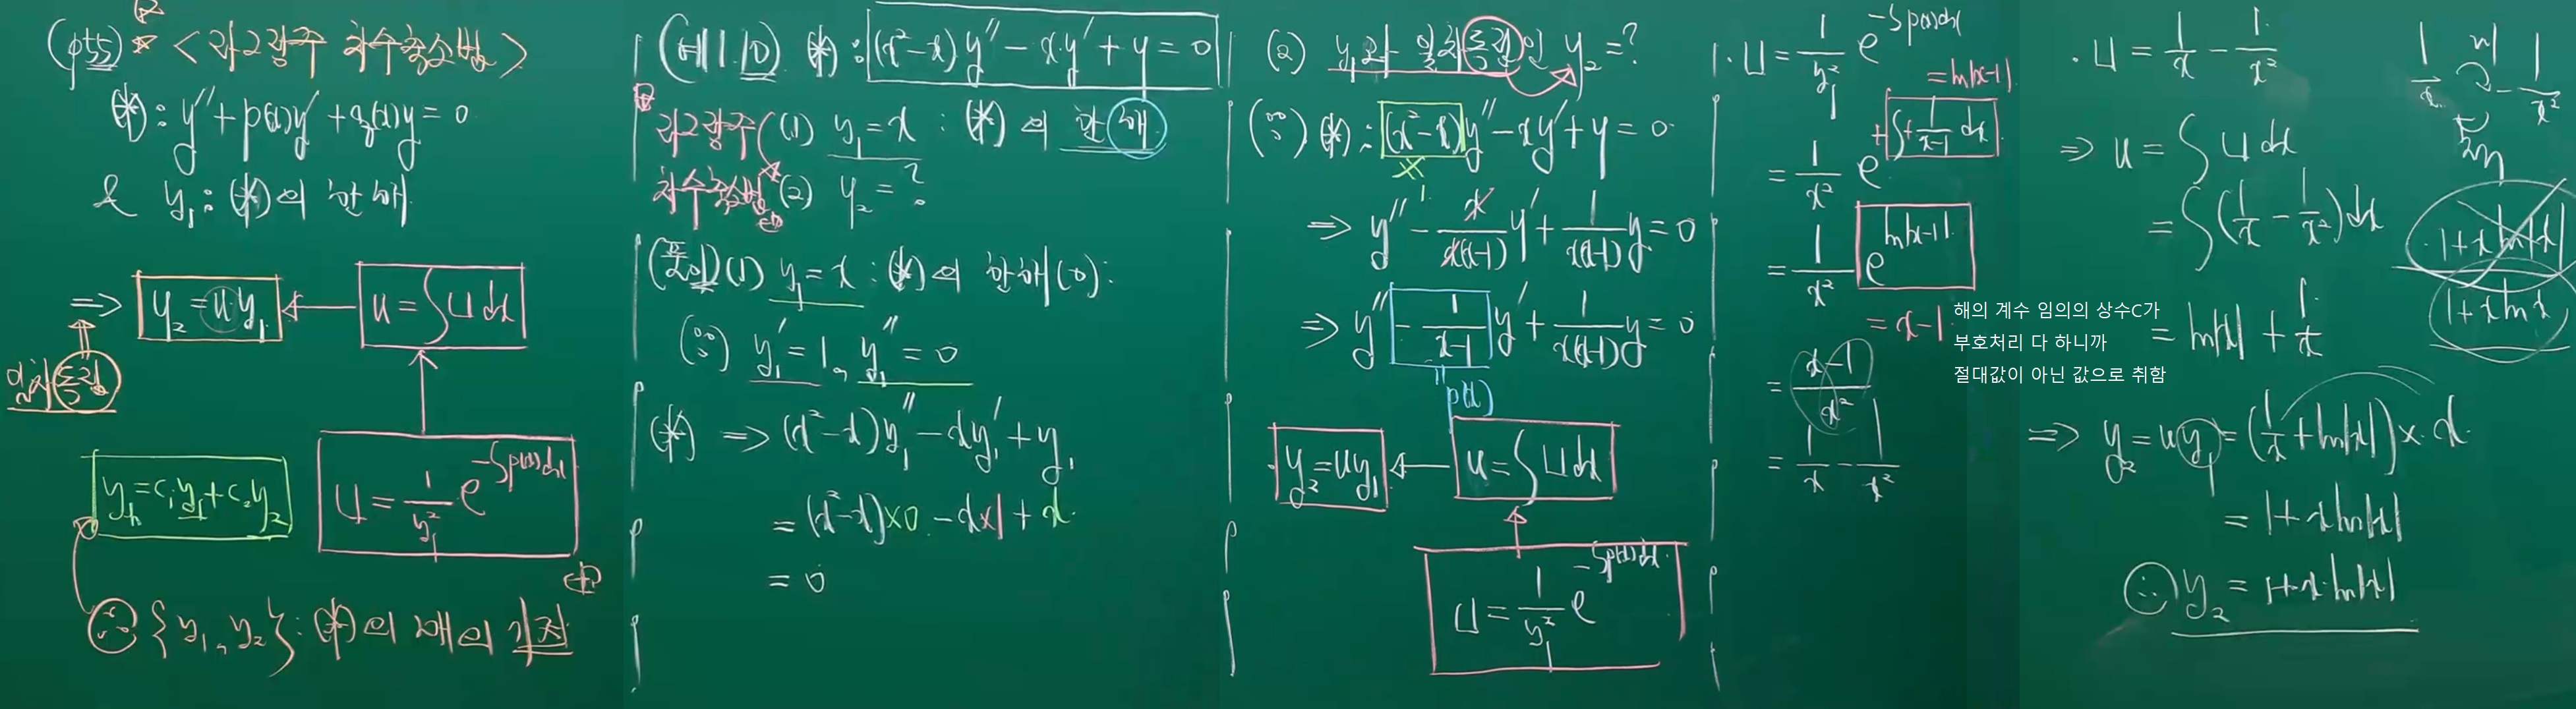 (p55) ☆ <라그랑주 차수축소법>
(*): y'' + p(x)y' + q(x)y = 0
& y₁: (*)의 한 해
⇒ y₂ = u·y₁ ← u = ∫U dx
일차독립
U = 1/y₁² e^(-∫p(x)dx)
y_h = c₁y₁ + c₂y₂
∴ {y₁, y₂}: (*)의 해의 기저
(예1.10) (*): (x²-x)y'' - x·y' + y = 0
라그랑주 차수축소법
(1) y₁ = x : (*)의 한 해
(2) y₂ = ?
(풀이)(1) y₁ = x : (*)의 한 해(o):
(∵) y₁' = 1, y₁'' = 0
(*) ⇒ (x²-x)y₁'' - xy₁' + y₁
= (x²-x)×0 - x×1 + x
= 0
(2) y₁과 일차독립인 y₂ = ?
(∵) (*): (x²-x)y'' - xy' + y = 0
⇒ y'' - x/(x(x-1)) y' + 1/(x(x-1)) y = 0
⇒ y'' - 1/(x-1) y' + 1/(x(x-1)) y = 0
" p(x)
y₂ = uy₁ ← u = ∫U dx
U = 1/y₁² e^(-∫p(x)dx)
· U = 1/y₁² e^(-∫p(x)dx)
= ln|x-1|
= 1/x² e^(+∫+1/(x-1) dx)
= 1/x² e^(ln|x-1|)
= x-1
= (x-1)/x²
= 1/x - 1/x²
해의 계수 임의의 상수C가
부호처리 다 하니까
절대값이 아닌 값으로 취함
· U = 1/x - 1/x²
⇒ u = ∫U dx
= ∫(1/x - 1/x²)dx
= ln|x| + 1/x
⇒ y₂ = uy₁ = (1/x + ln|x|) × x
= 1 + x ln|x|
∴ y₂ = 1 + x·ln|x|
1/x - 1/x²
1 + x ln|x|
1 + x ln x